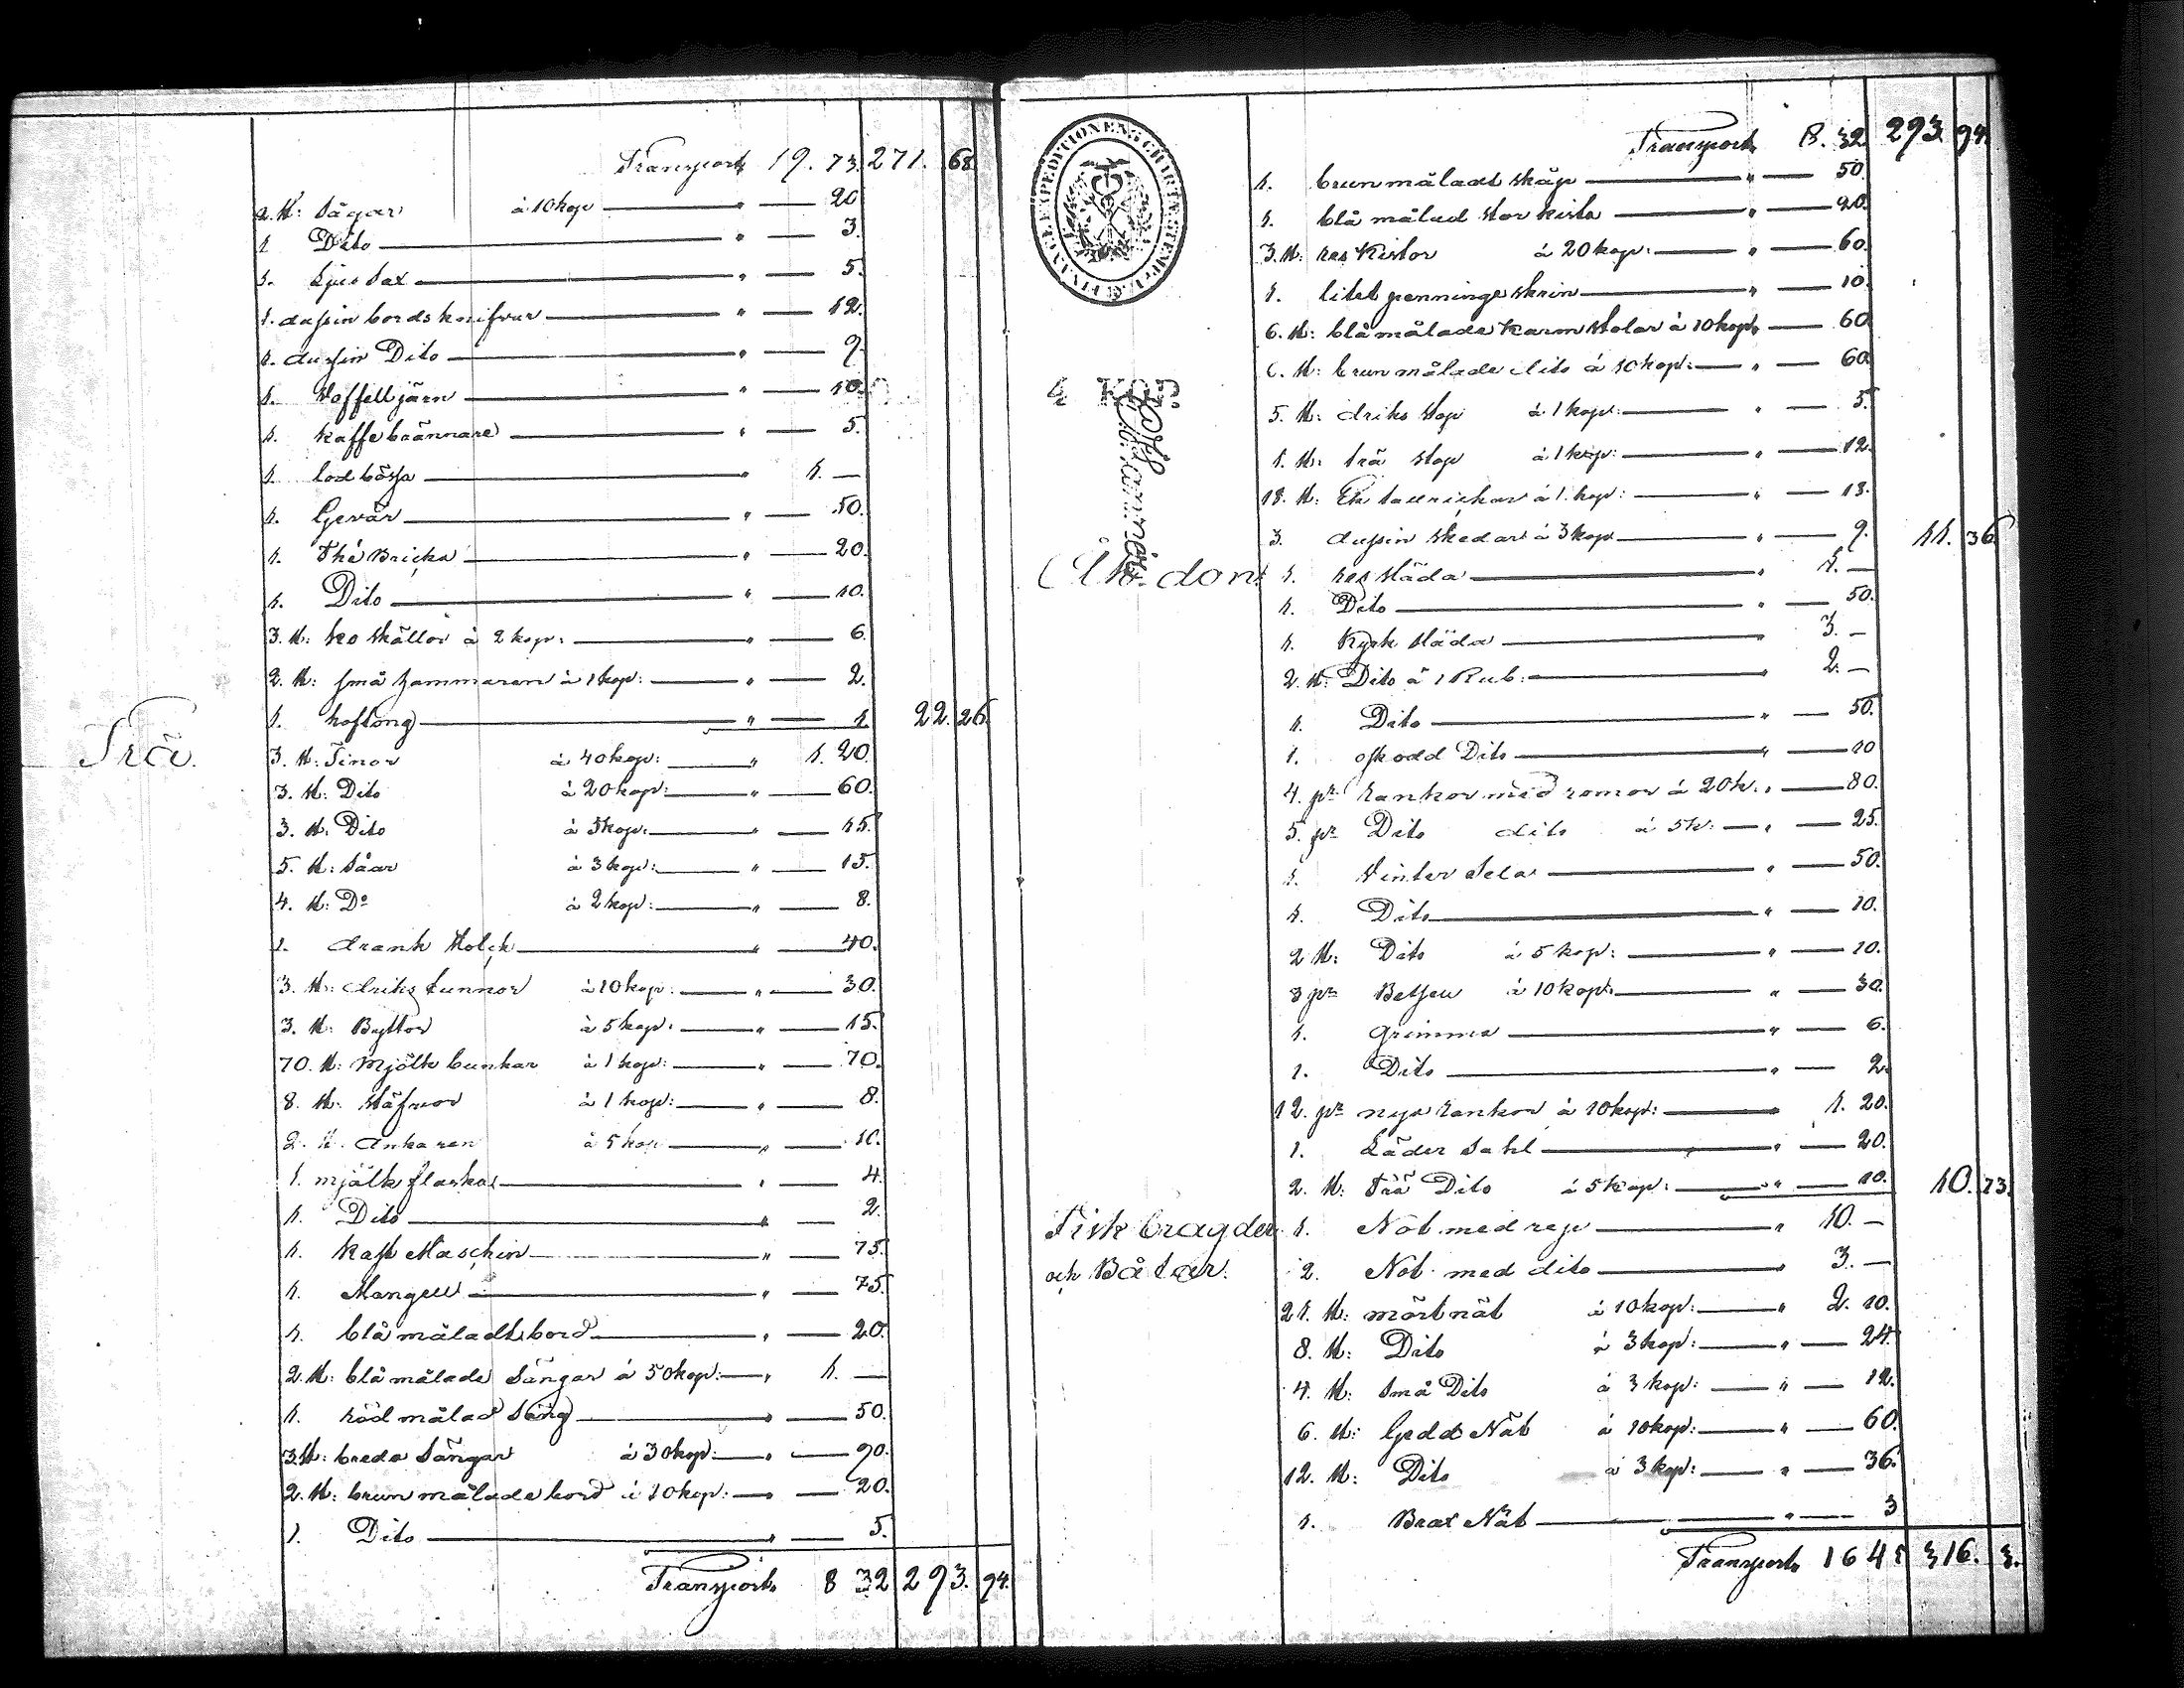 Transport 19. 73. 271. 68
2. St: Sågar à 10 kop " 20
1. Dito " 3.
1. Ljus Sax " 5.
1. dussin bords knifvar " 12.
1. dussin Dito " 9.
1. Voffelljärn " 10.
1. Kaffe brännare " 5.
1. lod bössa " 1. —
1. Gevär " 50.
1. Thé Bricka " 20.
1. Dito " 10.
3. St: ko skällor à 2 kop: " 6.
2. St: små hammaren à 1 kop: " 2.
1. hoftong " 1. 22. 26.
Trä.
3. St: Tinor à 40 kop: " 1. 20.
3. St: Dito à 20 kop: " 60.
3. St: Dito à 5 kop: " 15.
5. St: Såar à 3 kop: " 15.
4. St: Do à 2 kop: " 8.
1. drank Stolck " 40.
3. St: driks tunnor à 10 kop: " 30.
3. St: Byttor à 5 kop: " 15.
70. St: Mjölk bunkar à 1 kop: " 70.
8. St: Stäfvor à 1 kop: " 8.
2. St. Ankaren à 5 kop " 10.
1. mjölk flaska " 4.
1. Dito " 2.
1. Kast Maschin " 75.
1. Mangell " 75.
1. blå måladt bord " 20.
2. St: blå målade Sängar à 50 kop: " 1. —
1. röd målad Säng " 50.
3. St: breda Sängar à 30 kop: " 90.
2. St: brun målade bord à 10 kop: " 20.
1. Dito " 5.
Transport 8 32 293. 94.
FINANCE EXPEDITIONENS CHARTÆ STEMPEL
4 KOP.
Transport 8. 32 293. 94.
1. brun måladt skåp " 50.
1. blå målad stor kista " 20.
3. St: res Kistor à 20 kop: " 60.
1. litet penninge skrin " 10.
6. St: blå målade Karm stolar à 10 kop: " 60.
6. St: brun målade dito à 10 kop: " 60.
5. St: driks stop à 1 kop: " 5.
1. St: trä stop à 1 kop: " 12.
18. St: Trä tallrickar à 1. kop: " 18.
3. dussin Skedar à 3 kop " 9. 11. 36.
Åk don:
1. res släda " 1. —
1. Dito " 50.
1. Kyrk släda " 3. —
2. St: Dito à 1 Rub: " 2. —
1. Dito " 50.
1. oskodd Dito " 10
4. pr rankor med remor à 20 k. " 80.
5. pr Dito dito à 5 k: " 25.
1. Vinter Sela " 50.
1. Dito " 10.
2 St: Dito à 5 kop: " 10.
3 pr Betsell à 10 kop: " 30.
1. grimma " 6.
1. Dito " 2.
12. pr nya rankor à 10 kop: 1. 20.
1. Läder Sahl " 20.
2. St: Trä Dito à 5 kop: " 10. 10. 73.
Fisk bragder och Båtar.
1. Not med rep " 10. —
2. Not med dito " 3. —
21. St: mört nät à 10 kop: " 2. 10.
8. St: Dito à 3 kop: " 24.
4. St: Små Dito à 3 kop: " 12.
6. St: Gedd Nät à 10 kop: " 60.
12. St: Dito à 3 kop: " 36.
1. Brax Nät " 3
Transport 16 45 316. 3.